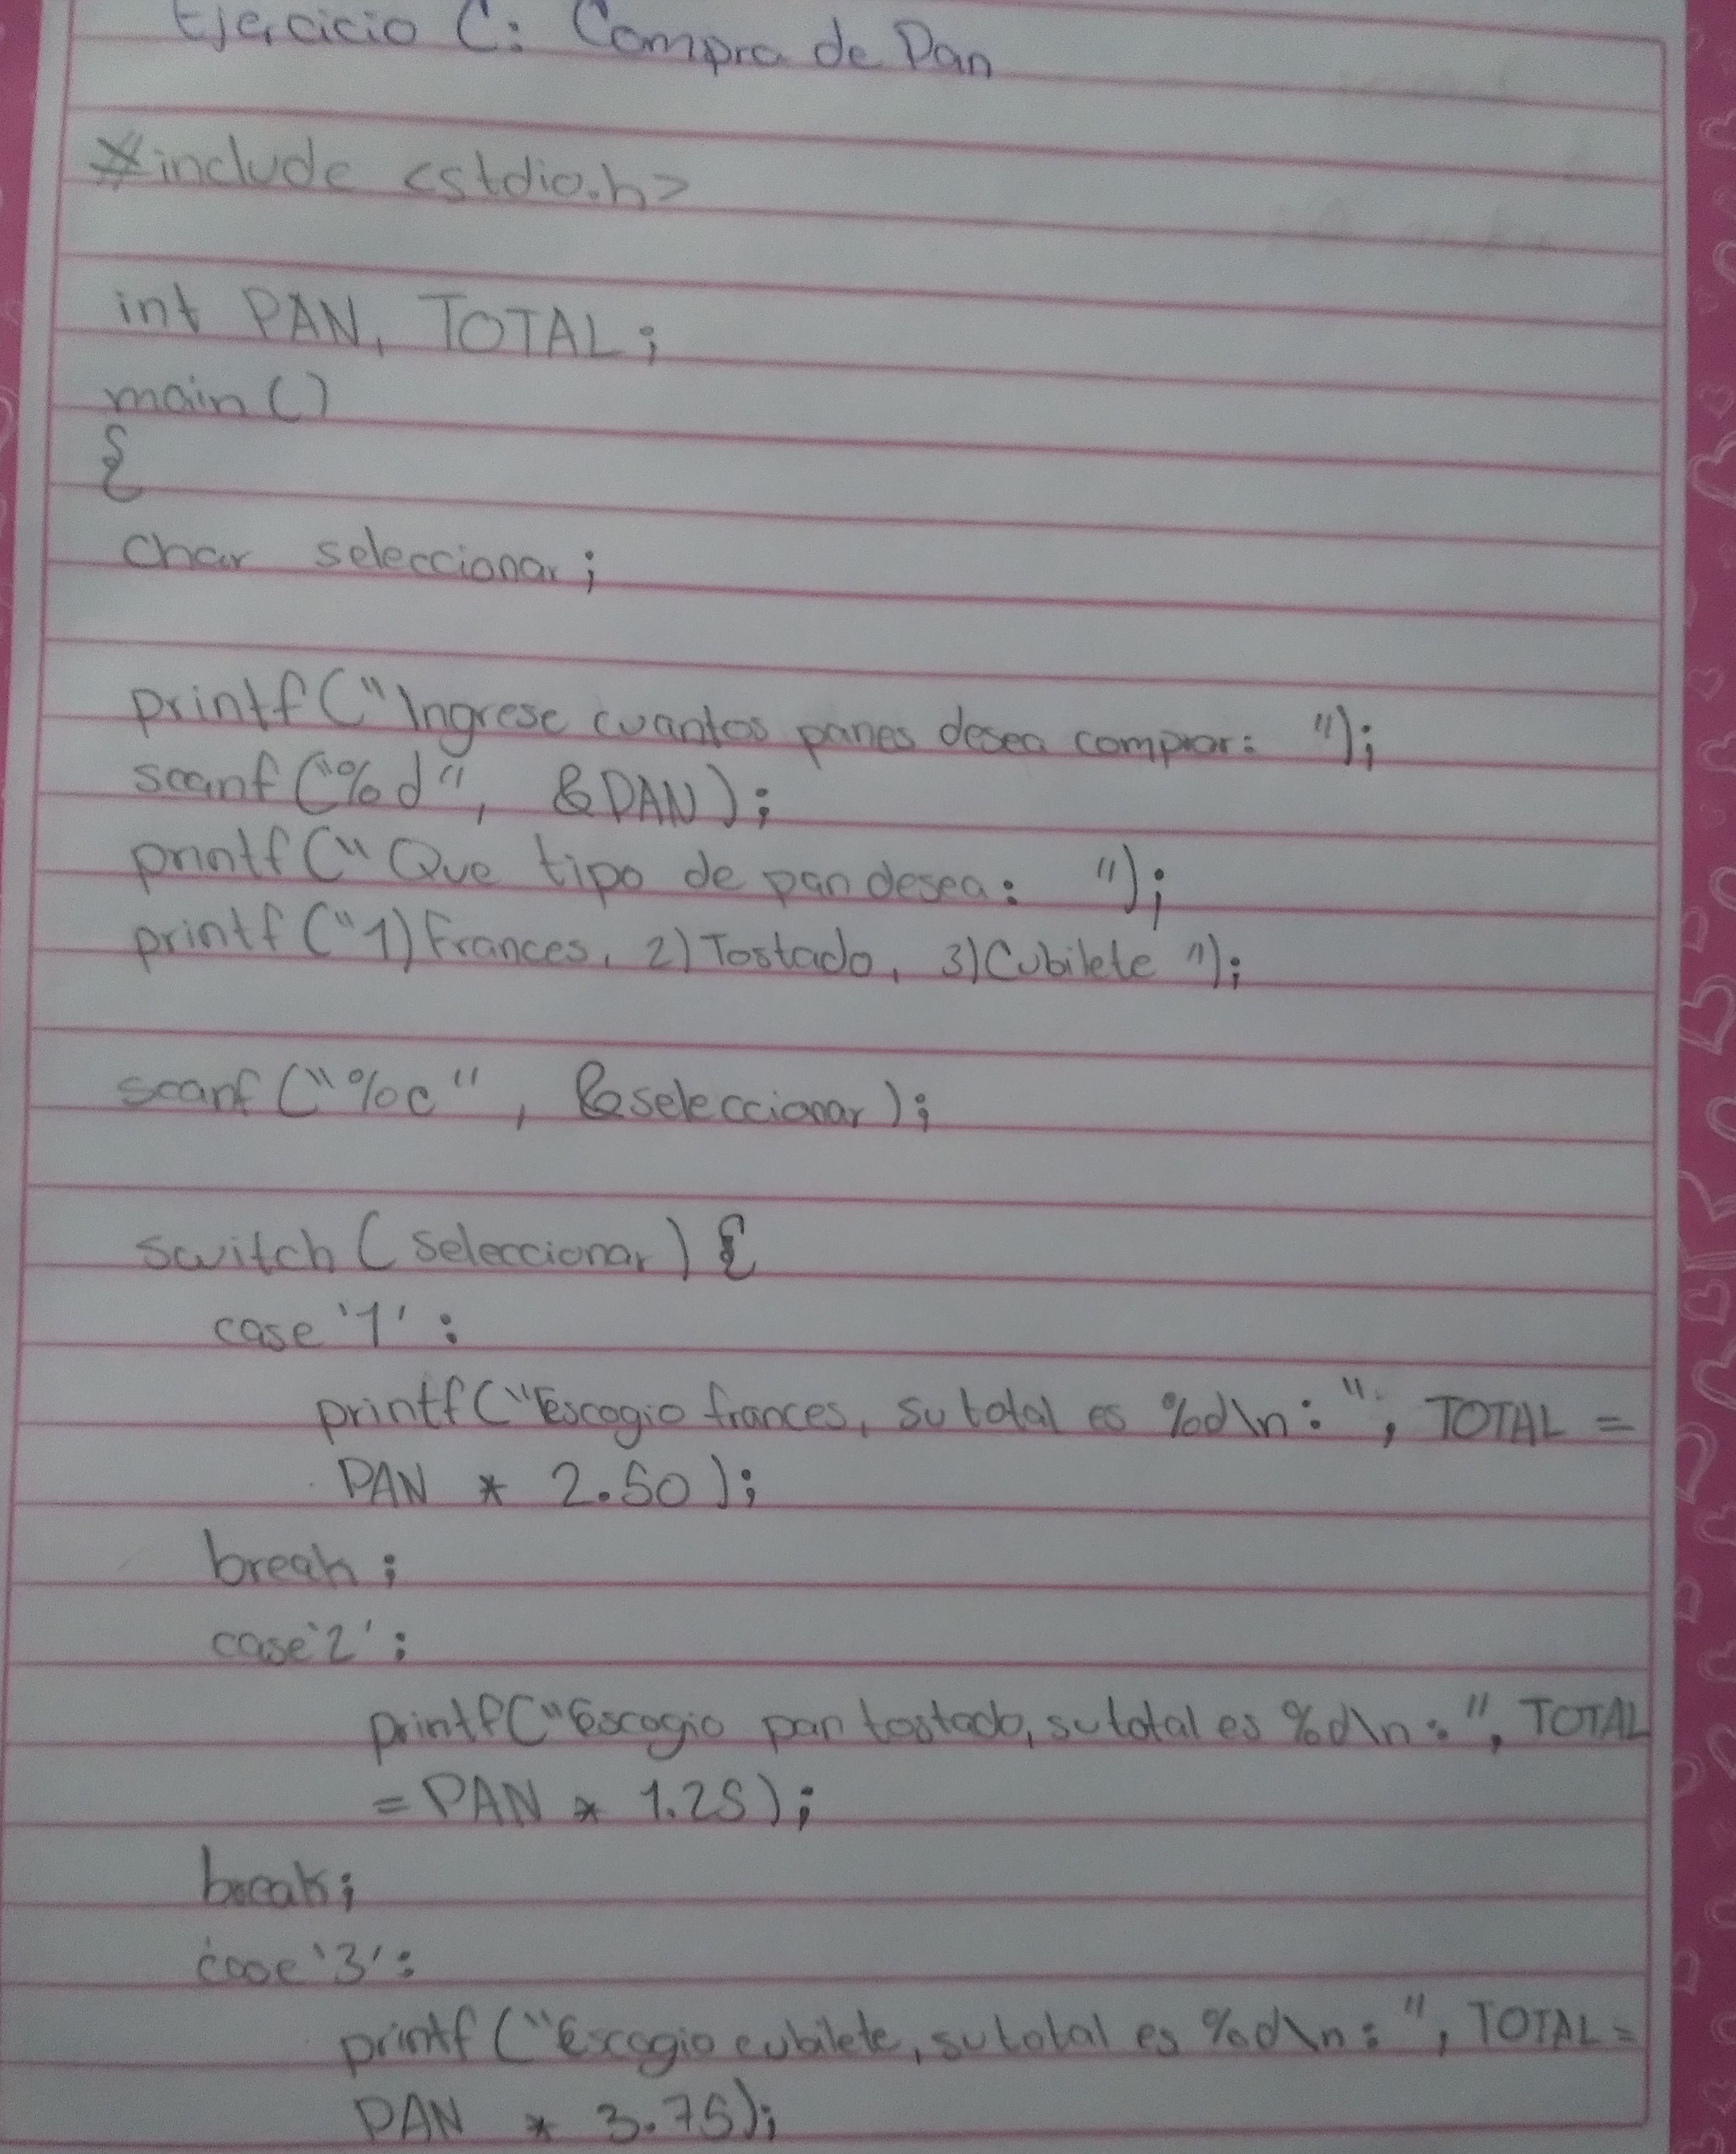 Ejercicio C: Compra de Pan
#include <stdio.h>
int PAN, TOTAL;
main()
{
char seleccionar;
printf("Ingrese cuantos panes desea comprar: ");
scanf("%d", &PAN);
printf("Que tipo de pan desea: ");
printf("1)Frances, 2)Tostado, 3)Cubilete ");
scanf("%c", &seleccionar);
switch(seleccionar){
case '1':
printf("Escogio frances, su total es %d\n: ", TOTAL =
PAN * 2.50);
break;
case '2':
printf("Escogio pan tostado, su total es %d\n: ", TOTAL
= PAN * 1.25);
break;
case '3':
printf("Escogio cubilete, su total es %d\n: ", TOTAL =
PAN * 3.75);